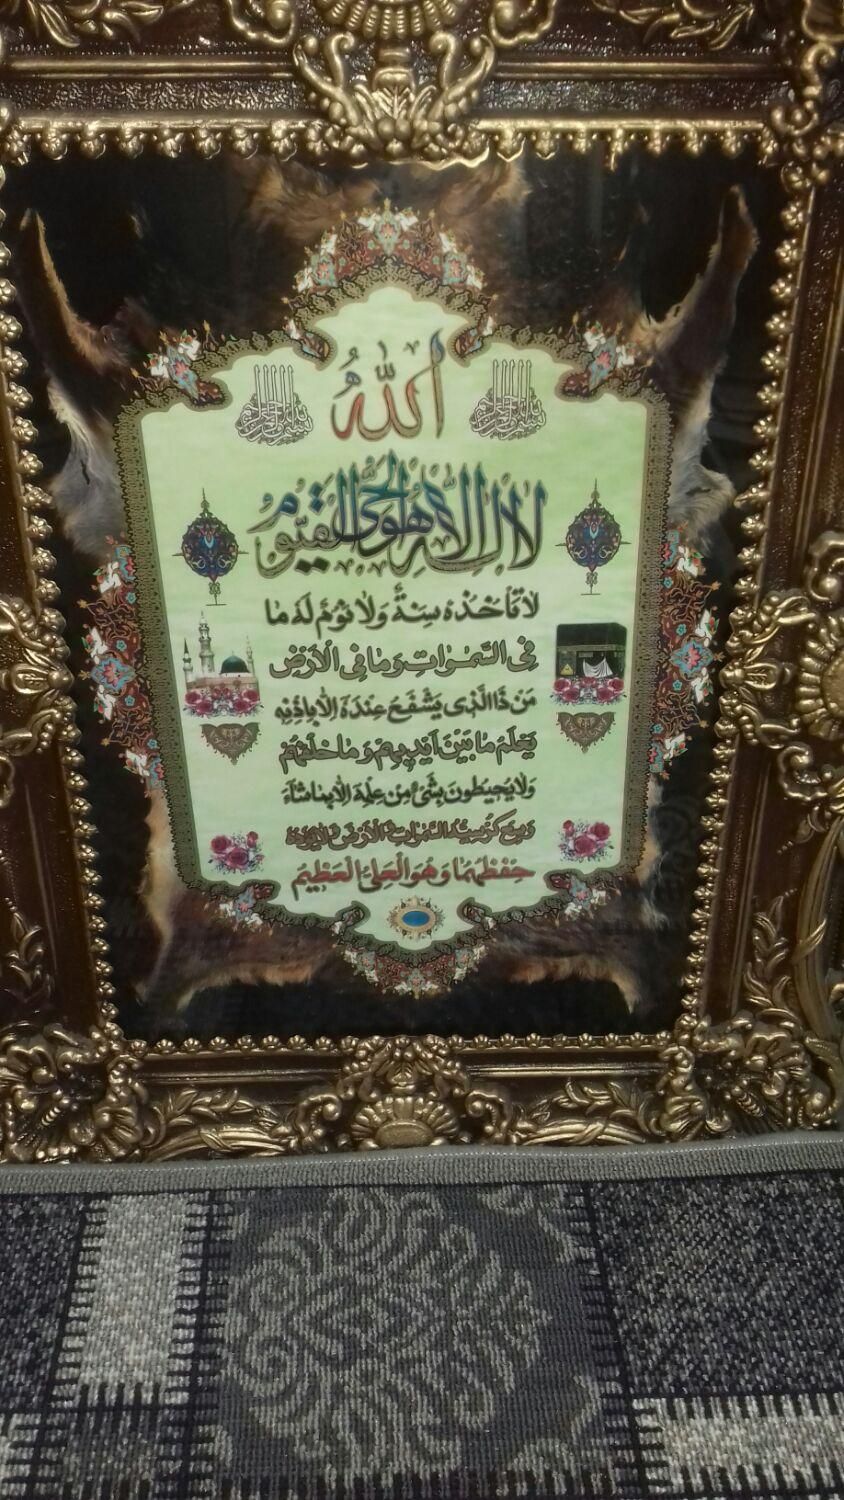 الله
لا اله الا هو الحي القيوم
لَا تَأْخُذُهُ سِنَةٌ وَلَا نَوْمٌ لَهُ مَا
فِی السَّمٰوَاتِ وَمَا فِی الْاَرْضِ
مَنْ ذَا الَّذِی يَشْفَعُ عِنْدَهُ اِلَّا بِاِذْنِهِ
يَعْلَمُ مَا بَيْنَ اَيْدِيهِمْ وَمَا خَلْفَهُمْ
وَلَا يُحِيطُونَ بِشَیْءٍ مِنْ عِلْمِهِ اِلَّا بِمَا شَاءَ
وَسِعَ كُرْسِيُّهُ السَّمٰوَاتِ وَالْاَرْضَ وَلَا يَؤُدُهُ
حِفْظُهُمَا وَهُوَ الْعَلِیُّ الْعَظِيمُ